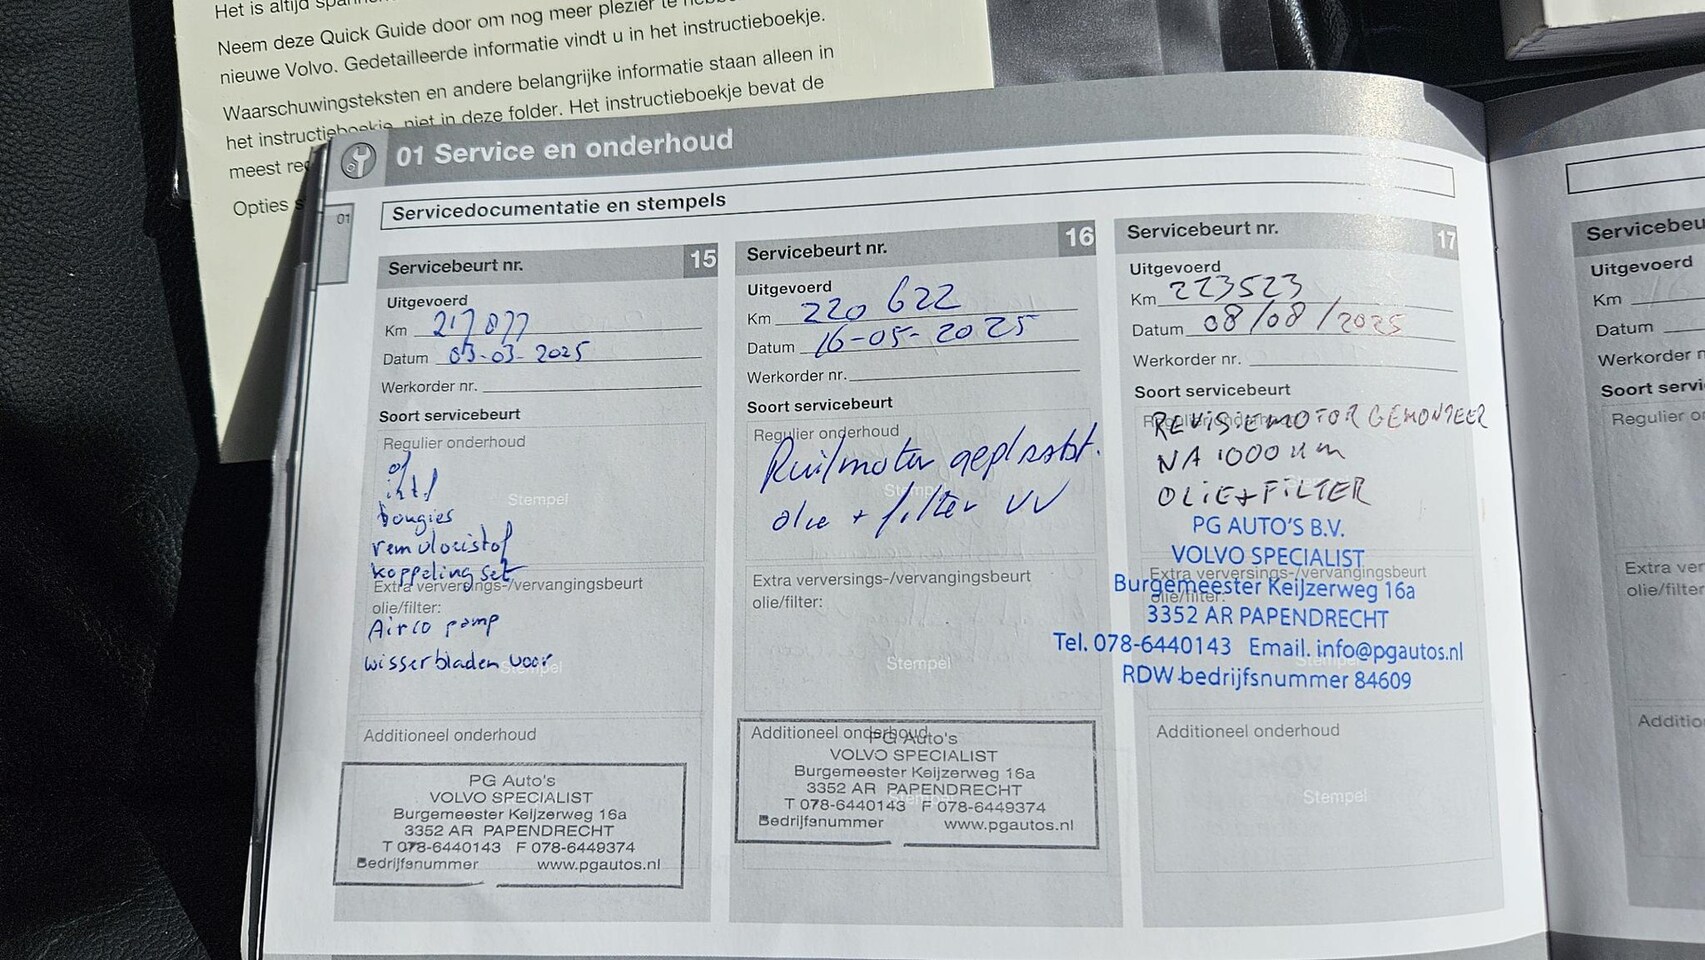 Het is altijd
Neem deze Quick Guide door om nog meer plezier te
nieuwe Volvo. Gedetailleerde informatie vindt u in het instructieboekje.
Waarschuwingsteksten en andere belangrijke informatie staan alleen in
het instructieboekje, niet in deze folder. Het instructieboekje bevat de
meest
Opties
01 Service en onderhoud
01
Servicedocumentatie en stempels
Servicebeurt nr. 15
Uitgevoerd
Km 217077
Datum 03-03-2025
Werkorder nr.
Soort servicebeurt
Regulier onderhoud
Stempel
bougies
remvloeistof
koppeling set
Extra verversings-/vervangingsbeurt
olie/filter:
Airco pomp
wisserbladen voor
Stempel
Additioneel onderhoud
PG Auto's
VOLVO SPECIALIST
Burgemeester Keijzerweg 16a
3352 AR PAPENDRECHT
T 078-6440143 F 078-6449374
Bedrijfsnummer www.pgautos.nl
Servicebeurt nr. 16
Uitgevoerd
Km 220 622
Datum 16-05-2025
Werkorder nr.
Soort servicebeurt
Regulier onderhoud
Ruilmotor geplaatst.
Stempel
olie + filter VV
Extra verversings-/vervangingsbeurt
olie/filter:
Stempel
Additioneel onderhoud
PG Auto's
VOLVO SPECIALIST
Burgemeester Keijzerweg 16a
3352 AR PAPENDRECHT
Stempel
T 078-6440143 F 078-6449374
Bedrijfsnummer www.pgautos.nl
Servicebeurt nr. 17
Uitgevoerd
Km 223523
Datum 08/08/2025
Werkorder nr.
Soort servicebeurt
Regulier onderhoud
REVISIEMOTOR GEMONTEER
NA 1000 km
OLIE+FILTER
PG AUTO'S B.V.
VOLVO SPECIALIST
Extra verversings-/vervangingsbeurt
olie/filter:
Burgemeester Keijzerweg 16a
3352 AR PAPENDRECHT
Tel. 078-6440143 Email. info@pgautos.nl
RDW-bedrijfsnummer 84609
Additioneel onderhoud
Stempel
Servicebeu
Uitgevoerd
Km
Datum
Werkorder n
Soort servi
Regulier o
Extra ver
olie/filter
Additio